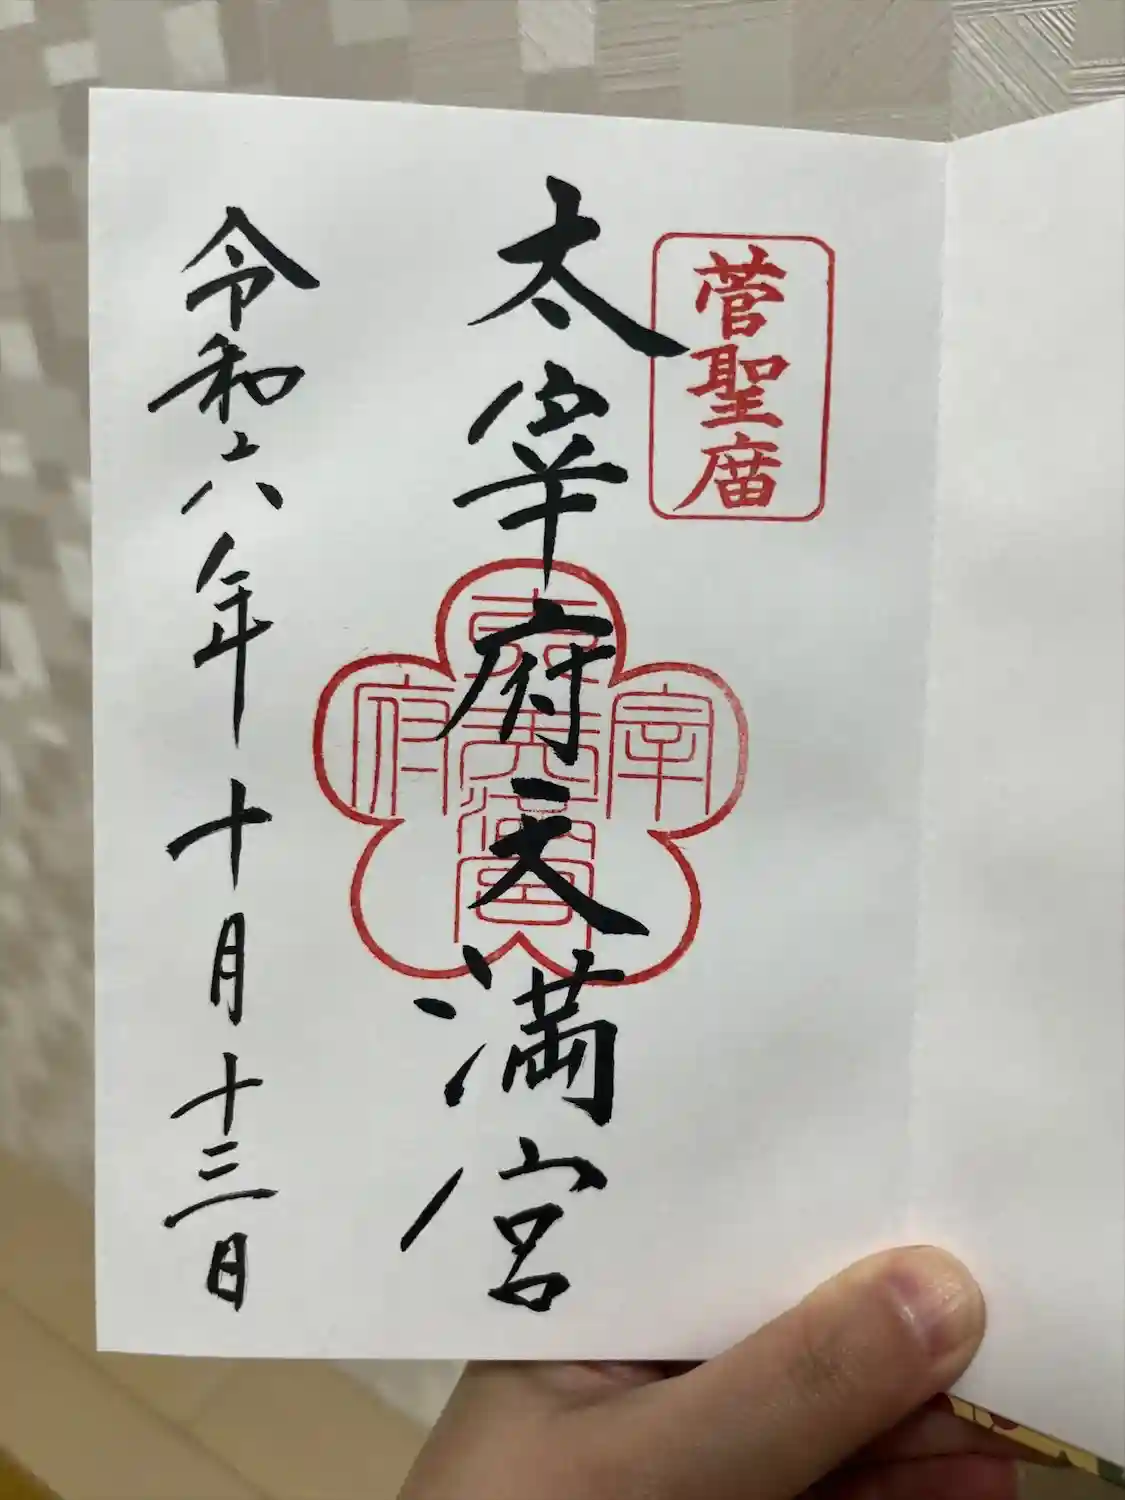 菅聖庿
太宰府天満宮
太宰府天満宮
令和六年十月十三日